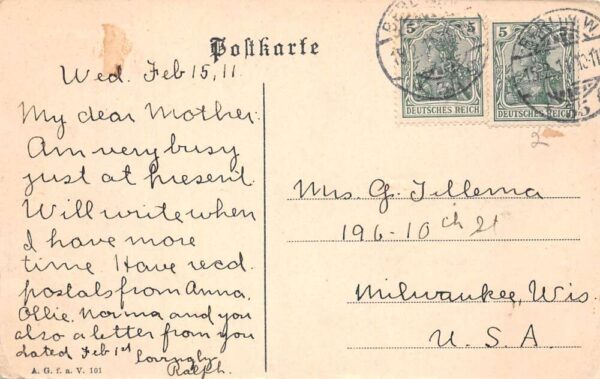 Postkarte
5 5
DEUTSCHES REICH
5
DEUTSCHES REICH
BERLIN W
Wed. Feb 15, 11.
My dear Mother:
Am very busy
just at present.
Will write when
I have more
time. Have recd.
postals from Anna,
Ollie, Norma and you
also a letter from you
dated Feb 1st
lovingly
Ralph.
Mrs. G. Tillema
196-10th St
Milwaukee, Wis.
U. S. A.
A. G. f. a. V. 101